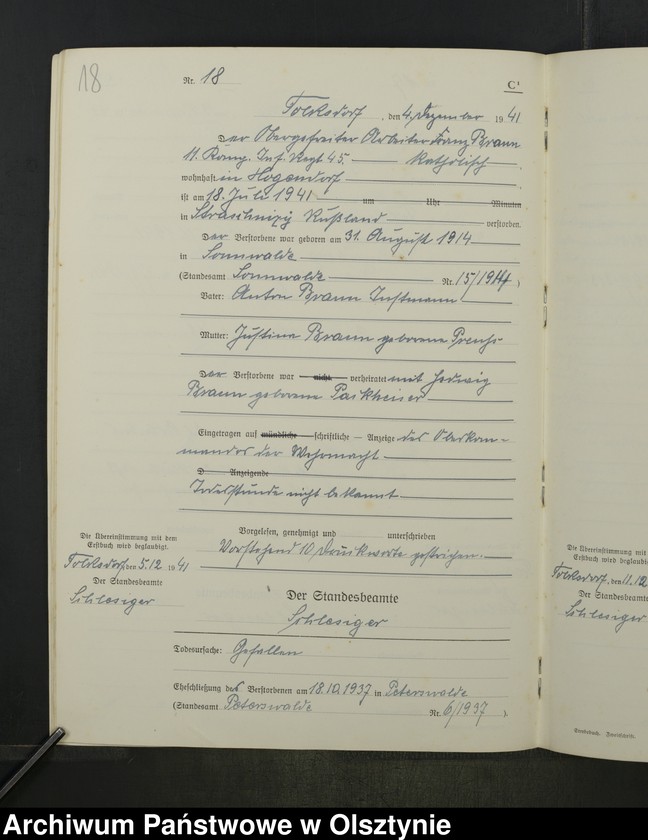 18
Nr. 18
C¹
Tolksdorf, den 4. Dezember 1941
Der Obergefreiter Arbeiter Franz Braun
11. Komp. Inf. Regt 45. katholisch
wohnhaft in Hogendorf
ist am 18. Juli 1941 um Uhr Minuten
in Rußland verstorben.
Der Verstorbene war geboren am 31. August 1914
in Sonnwalde
(Standesamt Sonnwalde Nr. 15/1914)
Vater: Anton Braun Instmann
Mutter: Justina Braun geborene Preuhs
Der Verstorbene war – nicht – verheiratet mit Hedwig
Braun geborene Parkheiser
Eingetragen auf mündliche – schriftliche – Anzeige des Oberkom-
mandos der Wehrmacht
D Anzeigende
Todesstunde nicht bekannt
Vorgelesen, genehmigt und unterschrieben
Vorstehend 10 Druckworte gestrichen.
Die Übereinstimmung mit dem
Erstbuch wird beglaubigt.
Tolksdorf, den 5.12. 1941
Der Standesbeamte
Schlesiger
Der Standesbeamte
Schlesiger
Todesursache: Gefallen
Eheschließung des Verstorbenen am 18.10.1937 in Peterswalde
(Standesamt Peterswalde Nr. 6/1937).
Die Übereinstimmung mit
Erstbuch wird beglaubi
Tolksdorf, den 11.12
Der Standesbeamte
Schlesiger
Sterbebuch. Zweitschrift.
Archiwum Państwowe w Olsztynie